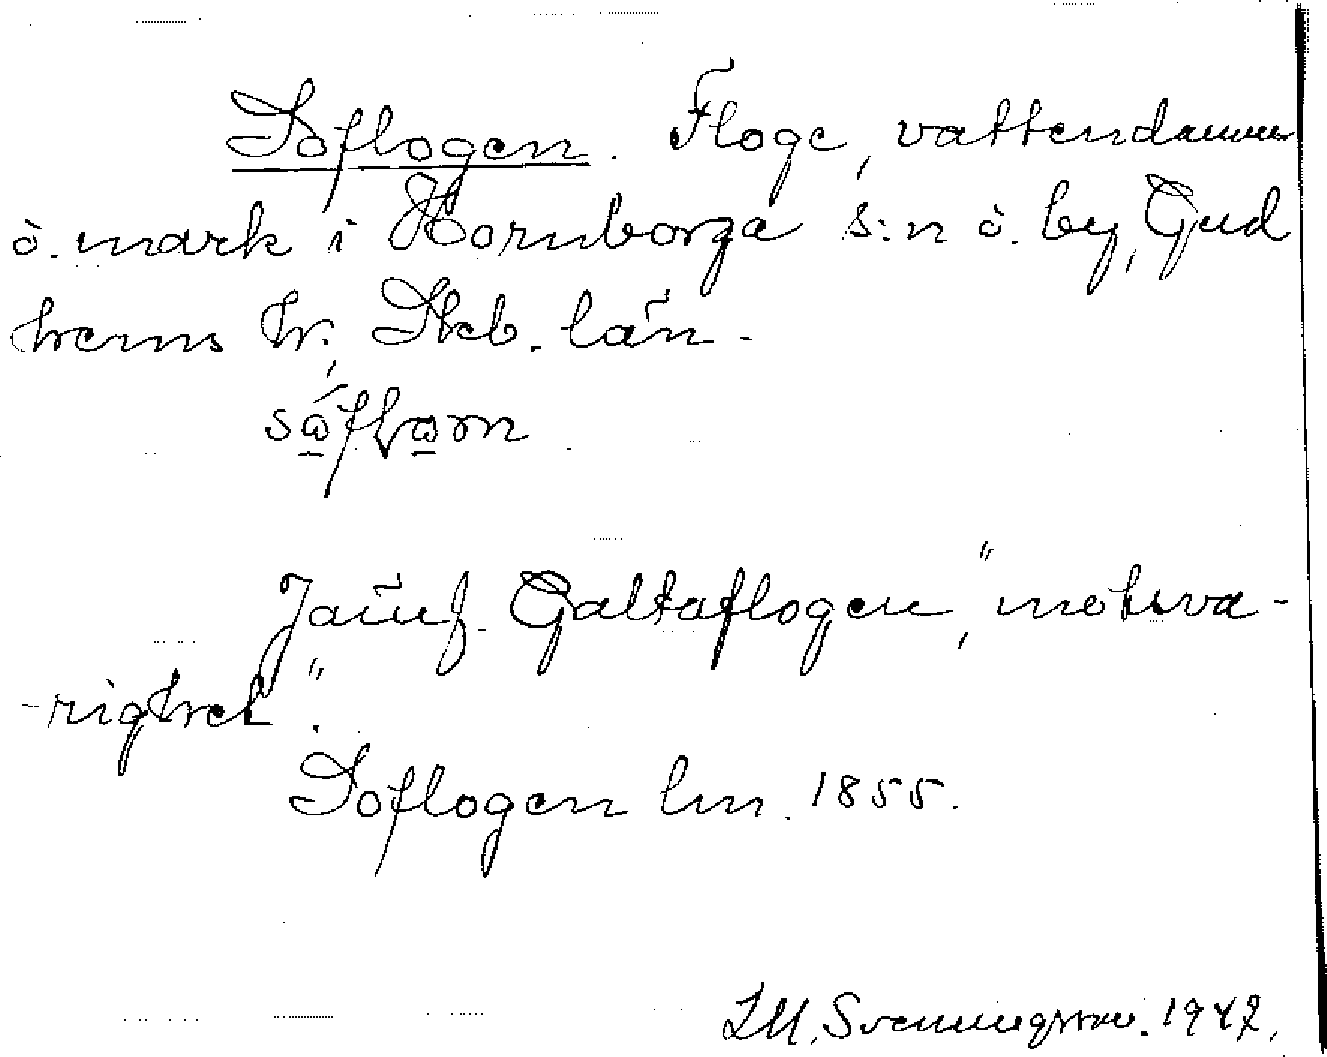 Soflogen. Floge, vattendamm
ö. mark i Hornborga s:n ö. by, Gud
hems hr., Skb. län.
Jämf. Galtaflogen, "motsva-
-righet".
Soflogen lm. 1855.
Svenningsson. 1942.